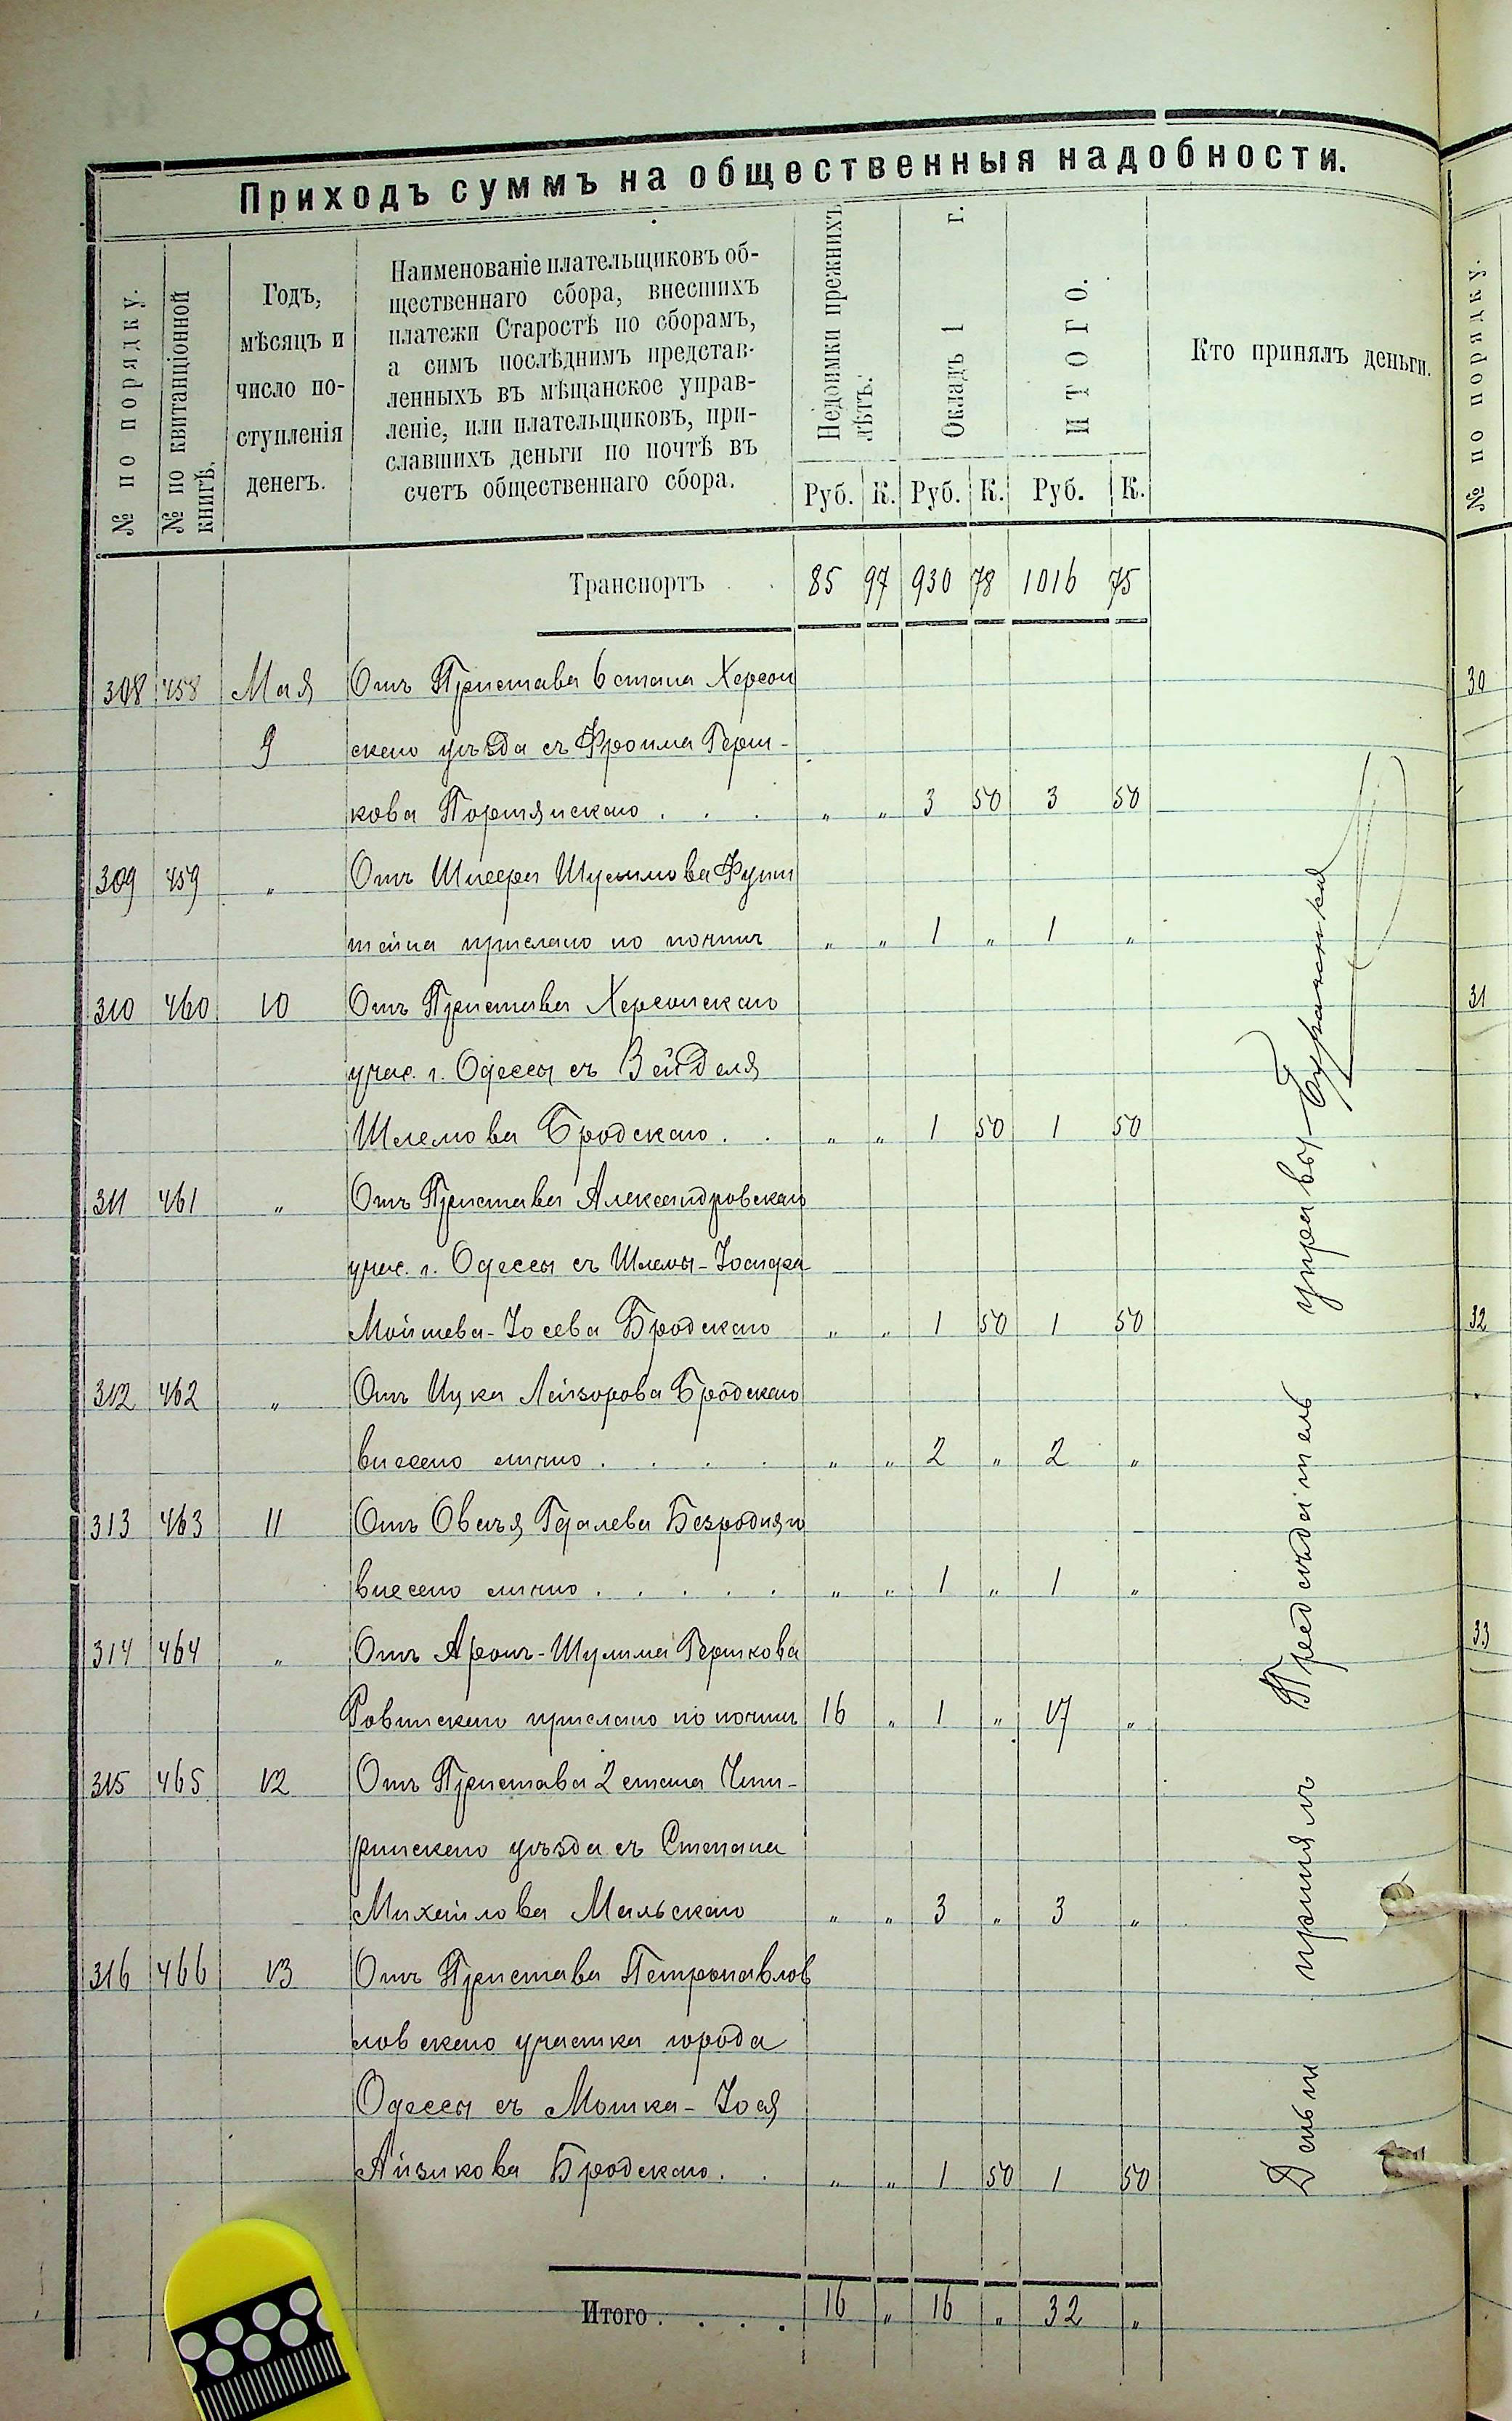 Приходъ суммъ на общественныя надобности.
№ по порядку.
№ по квитанціонной
книгѣ.
Годъ,
мѣсяцъ и
число по-
ступленія
денегъ.
Наименованіе плательщиковъ об-
щественнаго сбора, внесшихъ
платежи Старостѣ по сборамъ,
а симъ послѣднимъ представ-
ленныхъ въ мѣщанское управ-
леніе, или плательщиковъ, при-
славшихъ деньги по почтѣ въ
счетъ общественнаго сбора.
Недоимки прежнихъ
лѣтъ.
Окладъ 1 г.
ИТОГО.
Кто принялъ деньги.
Руб. К. Руб. К. Руб. К.
Транспортъ 85 97 930 78 1016 75
308 458 Мая Отъ Пристава 6 стана Херсон
9 скаго уѣзда съ Фроима Герш-
кова Портянскаго . . . " " 3 50 3 50
309 459 " Отъ Шисера Фунш
тейна прислано по почтѣ " " 1 " 1 "
310 460 10 Отъ Пристава Херсонскаго
учас. г. Одессы съ Вейделя
Шлемова Бродскаго . . " " 1 50 1 50
311 461 " Отъ Пристава Александровскаго
учас. г. Одессы съ Шлемы-
Мойшева-Іосева Бродскаго " " 1 50 1 50
312 462 " Отъ Ицка Лейзорова Бродскаго
внесено лично . . . . " " 2 " 2 "
313 463 11 Отъ Овсѣя Гдалева Безродняго
внесено лично . . . . . " " 1 " 1 "
314 464 " Отъ Аронъ-Шулима Гершкова
Ровинскаго прислано по почтѣ 16 " 1 " 17 "
315 465 12 Отъ Пристава 2 стана Чиги-
ринскаго уѣзда съ Степана
Михайлова Мальскаго " " 3 " 3 "
316 466 13 Отъ Пристава Петропавлов
ловскаго участка города
Одессы съ Мошка-Іося
Айзикова Бродскаго . . " " 1 50 1 50
Итого . . . . 16 " 16 " 32 "
Деньги принялъ Предсѣдатель управы
№ по порядку.
30
31
32
33